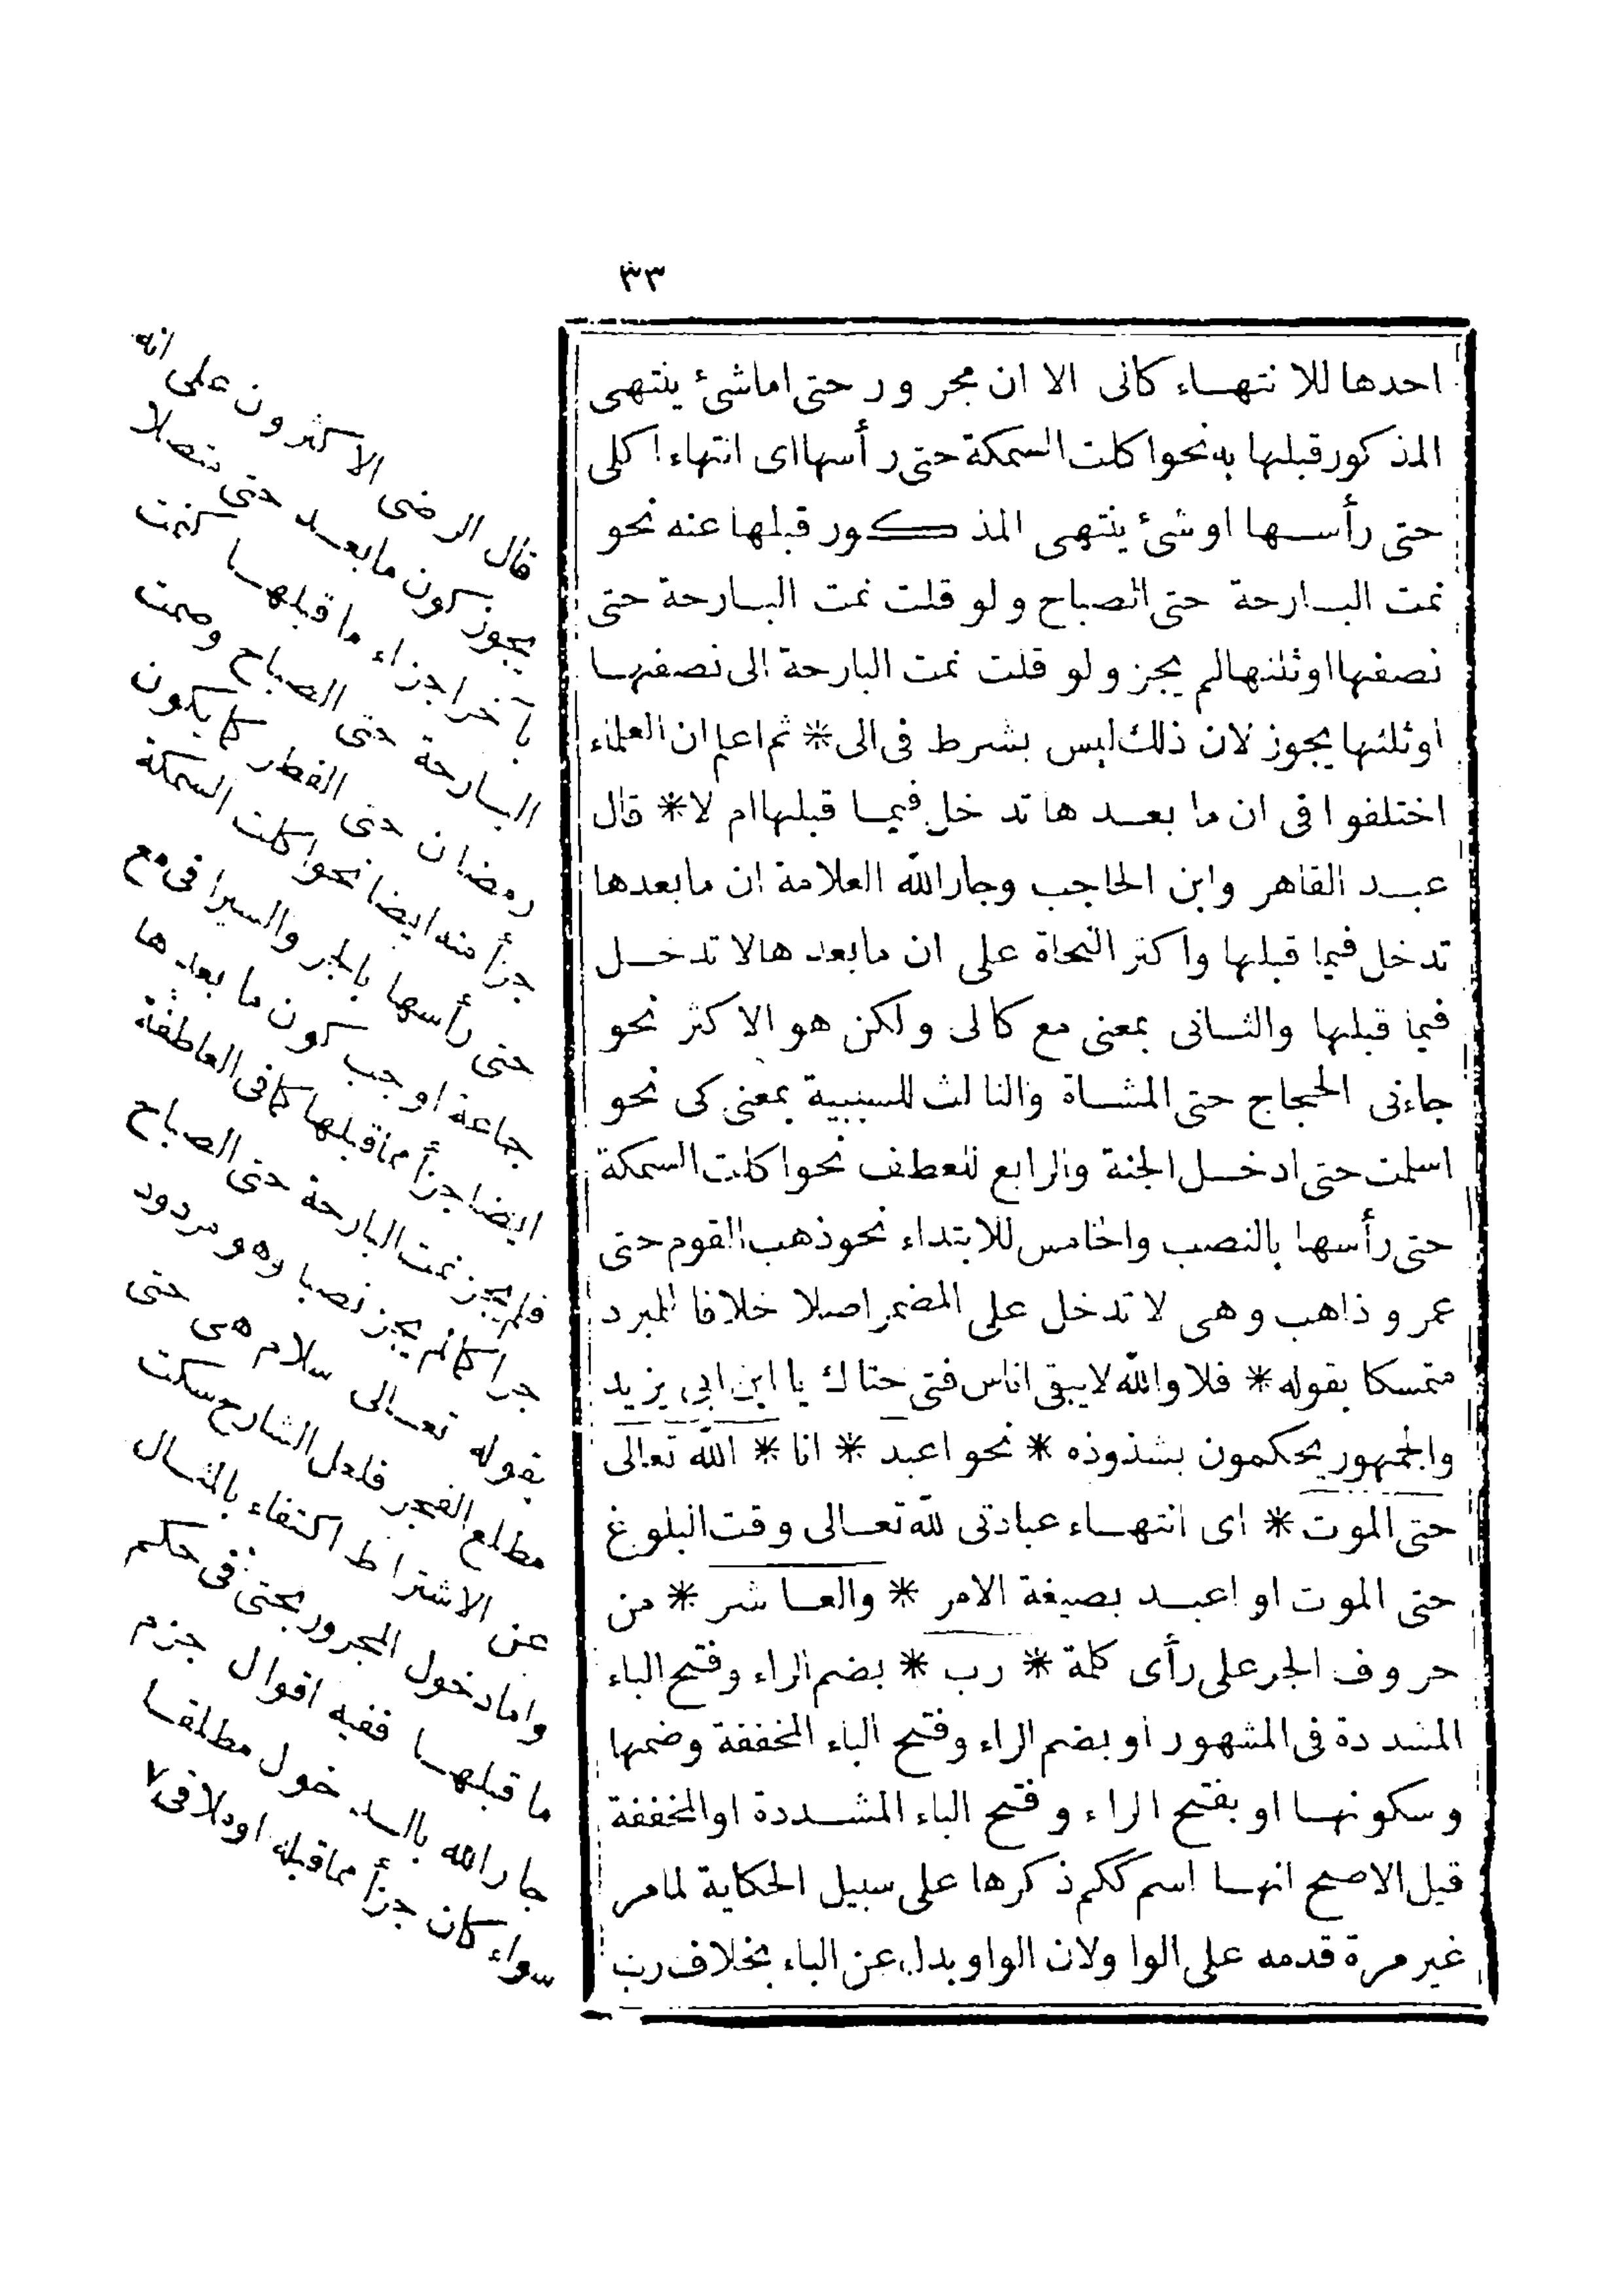 ٣٣
احدها للانتهاء كالى الا ان مجرور حتى اما شئ ينتهى
المذكور قبلها به نحو اكلت السمكة حتى رأسها اى انتهاء اكلى
حتى رأسها او شئ ينتهى المذكور قبلها عنه نحو
نمت البارحة حتى الصباح ولو قلت نمت البارحة حتى
نصفها او ثلثها لم يجز ولو قلت نمت البارحة الى نصفها
او ثلثها يجوز لان ذلك ليس بشرط فى الى * ثم اعلم ان العلماء
اختلفوا فى ان ما بعدها تدخل فيما قبلها ام لا * قال
عبد القاهر وابن الحاجب وجار الله العلامة ان ما بعدها
تدخل فيما قبلها واكثر النحاة على ان ما بعدها لا تدخل
فيما قبلها والثانى بمعنى مع كالى ولكن هو الاكثر نحو
جاءنى الحجاج حتى المشاة والثالث للسببية بمعنى كى نحو
اسلمت حتى ادخل الجنة والرابع للعطف نحو اكلت السمكة
حتى رأسها بالنصب والخامس للابتداء نحو ذهب القوم حتى
عمرو ذاهب وهى لا تدخل على المضمر اصلا خلافا للمبرد
متمسكا بقوله * فلا والله لا يبقى اناس فتى حتاك يا ابن ابى يزيد
والجمهور يحكمون بشذوذه * نحو اعبد * انا * الله تعالى
حتى الموت * اى انتهاء عبادتى لله تعالى وقت البلوغ
حتى الموت او اعبد بصيغة الامر * والعاشر * من
حروف الجر على رأى كلمة * رب * بضم الراء وفتح الباء
المشددة فى المشهور او بضم الراء وفتح الباء المخففة وضمها
وسكونها او بفتح الراء وفتح الباء المشددة او المخففة
قيل الاصح انها اسم ككم ذكرها على سبيل الحكاية لما مر
غير مرة قدمه على الواو لان الواو بدل عن الباء بخلاف رب
قال الرضى الاكثرون على انه
يجوز كون ما بعد حتى متصلا
بآخر اجزاء ما قبلها كنمت
البارحة حتى الصباح وصمت
رمضان حتى الفطر كما يكون
جزأ منه ايضا نحو اكلت السمكة
حتى رأسها بالجر والسيرافى مع
جماعة اوجب كون ما بعدها
ايضا جزأ مما قبلها كما فى العاطفة
فلم يجز نمت البارحة حتى الصباح
جرا كما لم يجز نصبا وهو مردود
بقوله تعالى سلام هى حتى
مطلع الفجر فلعل الشارح سكت
عن الاشتراط اكتفاء بالمثال
واما دخول المجرور بحتى فى حكم
ما قبلها ففيه اقوال جزم
جار الله بالدخول مطلقا
سواء كان جزأ مما قبله او لا فى ٧